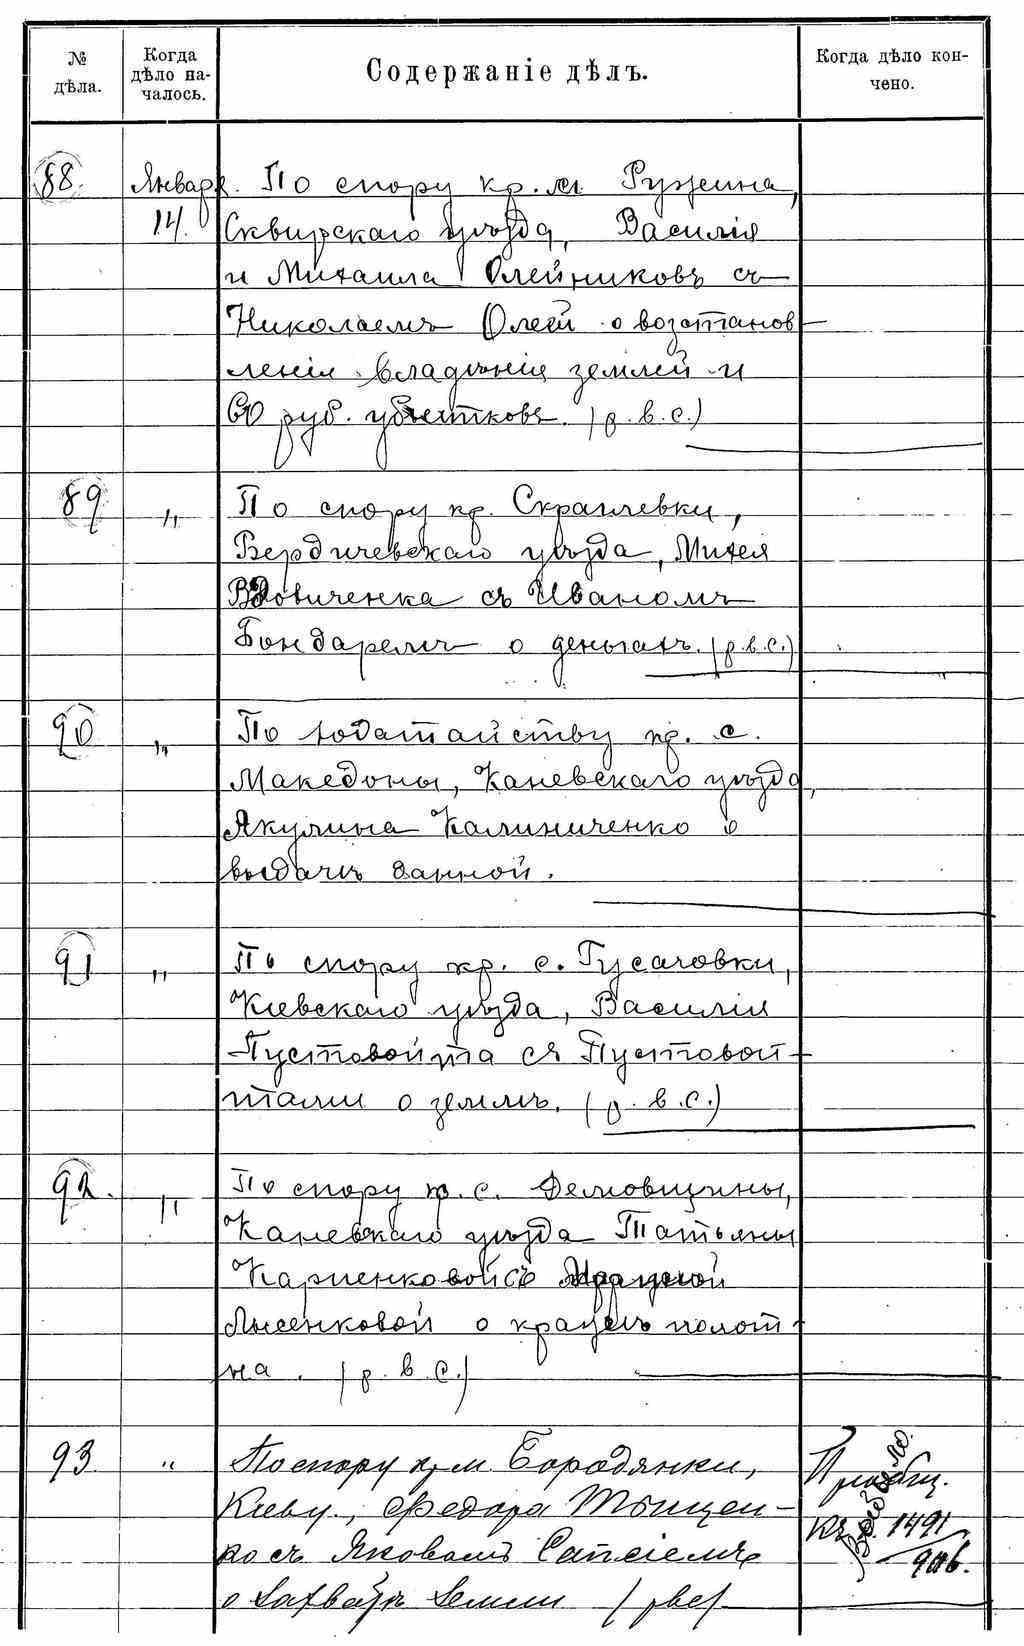 № дѣла.
Когда дѣло началось.
Содержаніе дѣлъ.
Когда дѣло кончено.
88. Января 14. По спору кр. м. Ружина,
Сквирскаго уѣзда, Василія
и Михаила Олейниковъ съ
Николаемъ Олей о возстанов-
леніи владѣнія землей и
60 руб. убытковъ. (р. в. с.)
89 " По спору кр. Скраглевки,
Бердичевскаго уѣзда, Михея
Вдовиченка съ Иваномъ
Бондаремъ о деньгахъ. (р. в. с.)
90 " По ходатайству кр. с.
Македоны, Каневскаго уѣзда,
Якулина Калиниченко о
выдачѣ данной.
91 " По спору кр. с. Гусачовки,
Кіевскаго уѣзда, Василія
Пустовойта съ Пустовой-
тами о землѣ. (р. в. с.)
92. " По спору кр. с. Демовщины,
Каневскаго уѣзда Татьяны
Карпенковой съ
Лысенковой о кражѣ полот-
на. (р. в. с.)
93. " По спору кр. м. Бородянки,
Кіеву., Федора Тищен-
ко съ Яковомъ Сапсіемъ
о захватѣ земли (рвс)
Приобщ.
къ 1491/906.